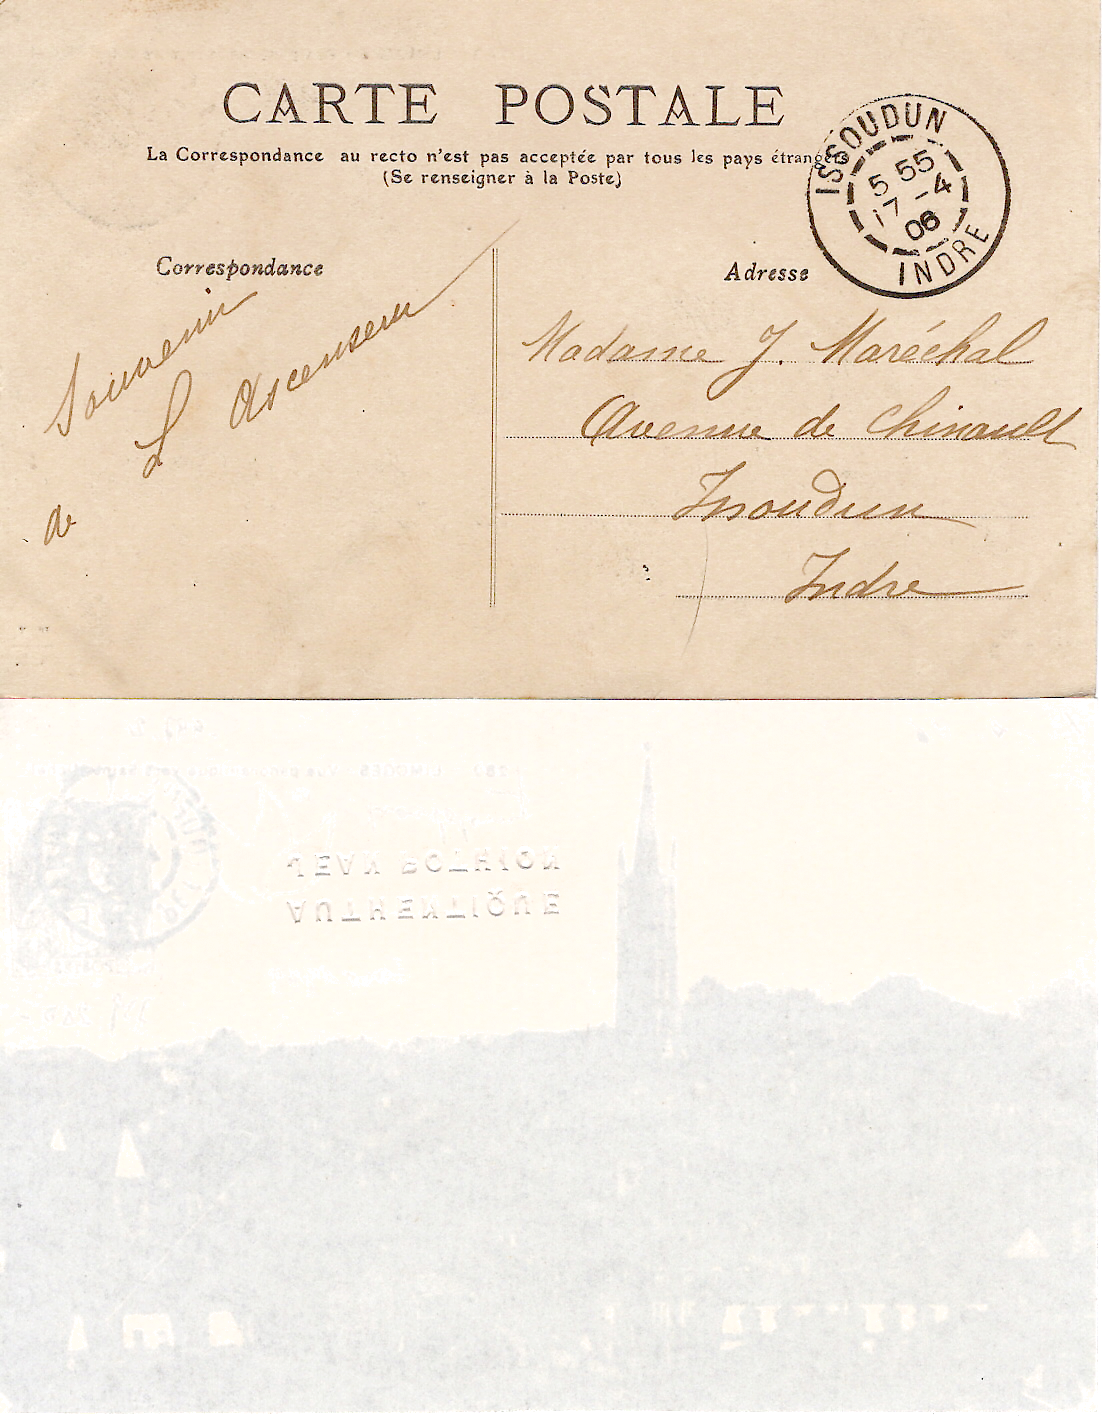 CARTE POSTALE
La Correspondance au recto n'est pas acceptée par tous les pays étrangers
(Se renseigner à la Poste)
ISSOUDUN
5 55
17 -4
06
INDRE
Correspondance
Souvenir
de L'Ascenseur
Adresse
Madame J. Maréchal
Avenue de Chinault
Issoudun
Indre
JEAN POTHION
AUTHENTIQUE